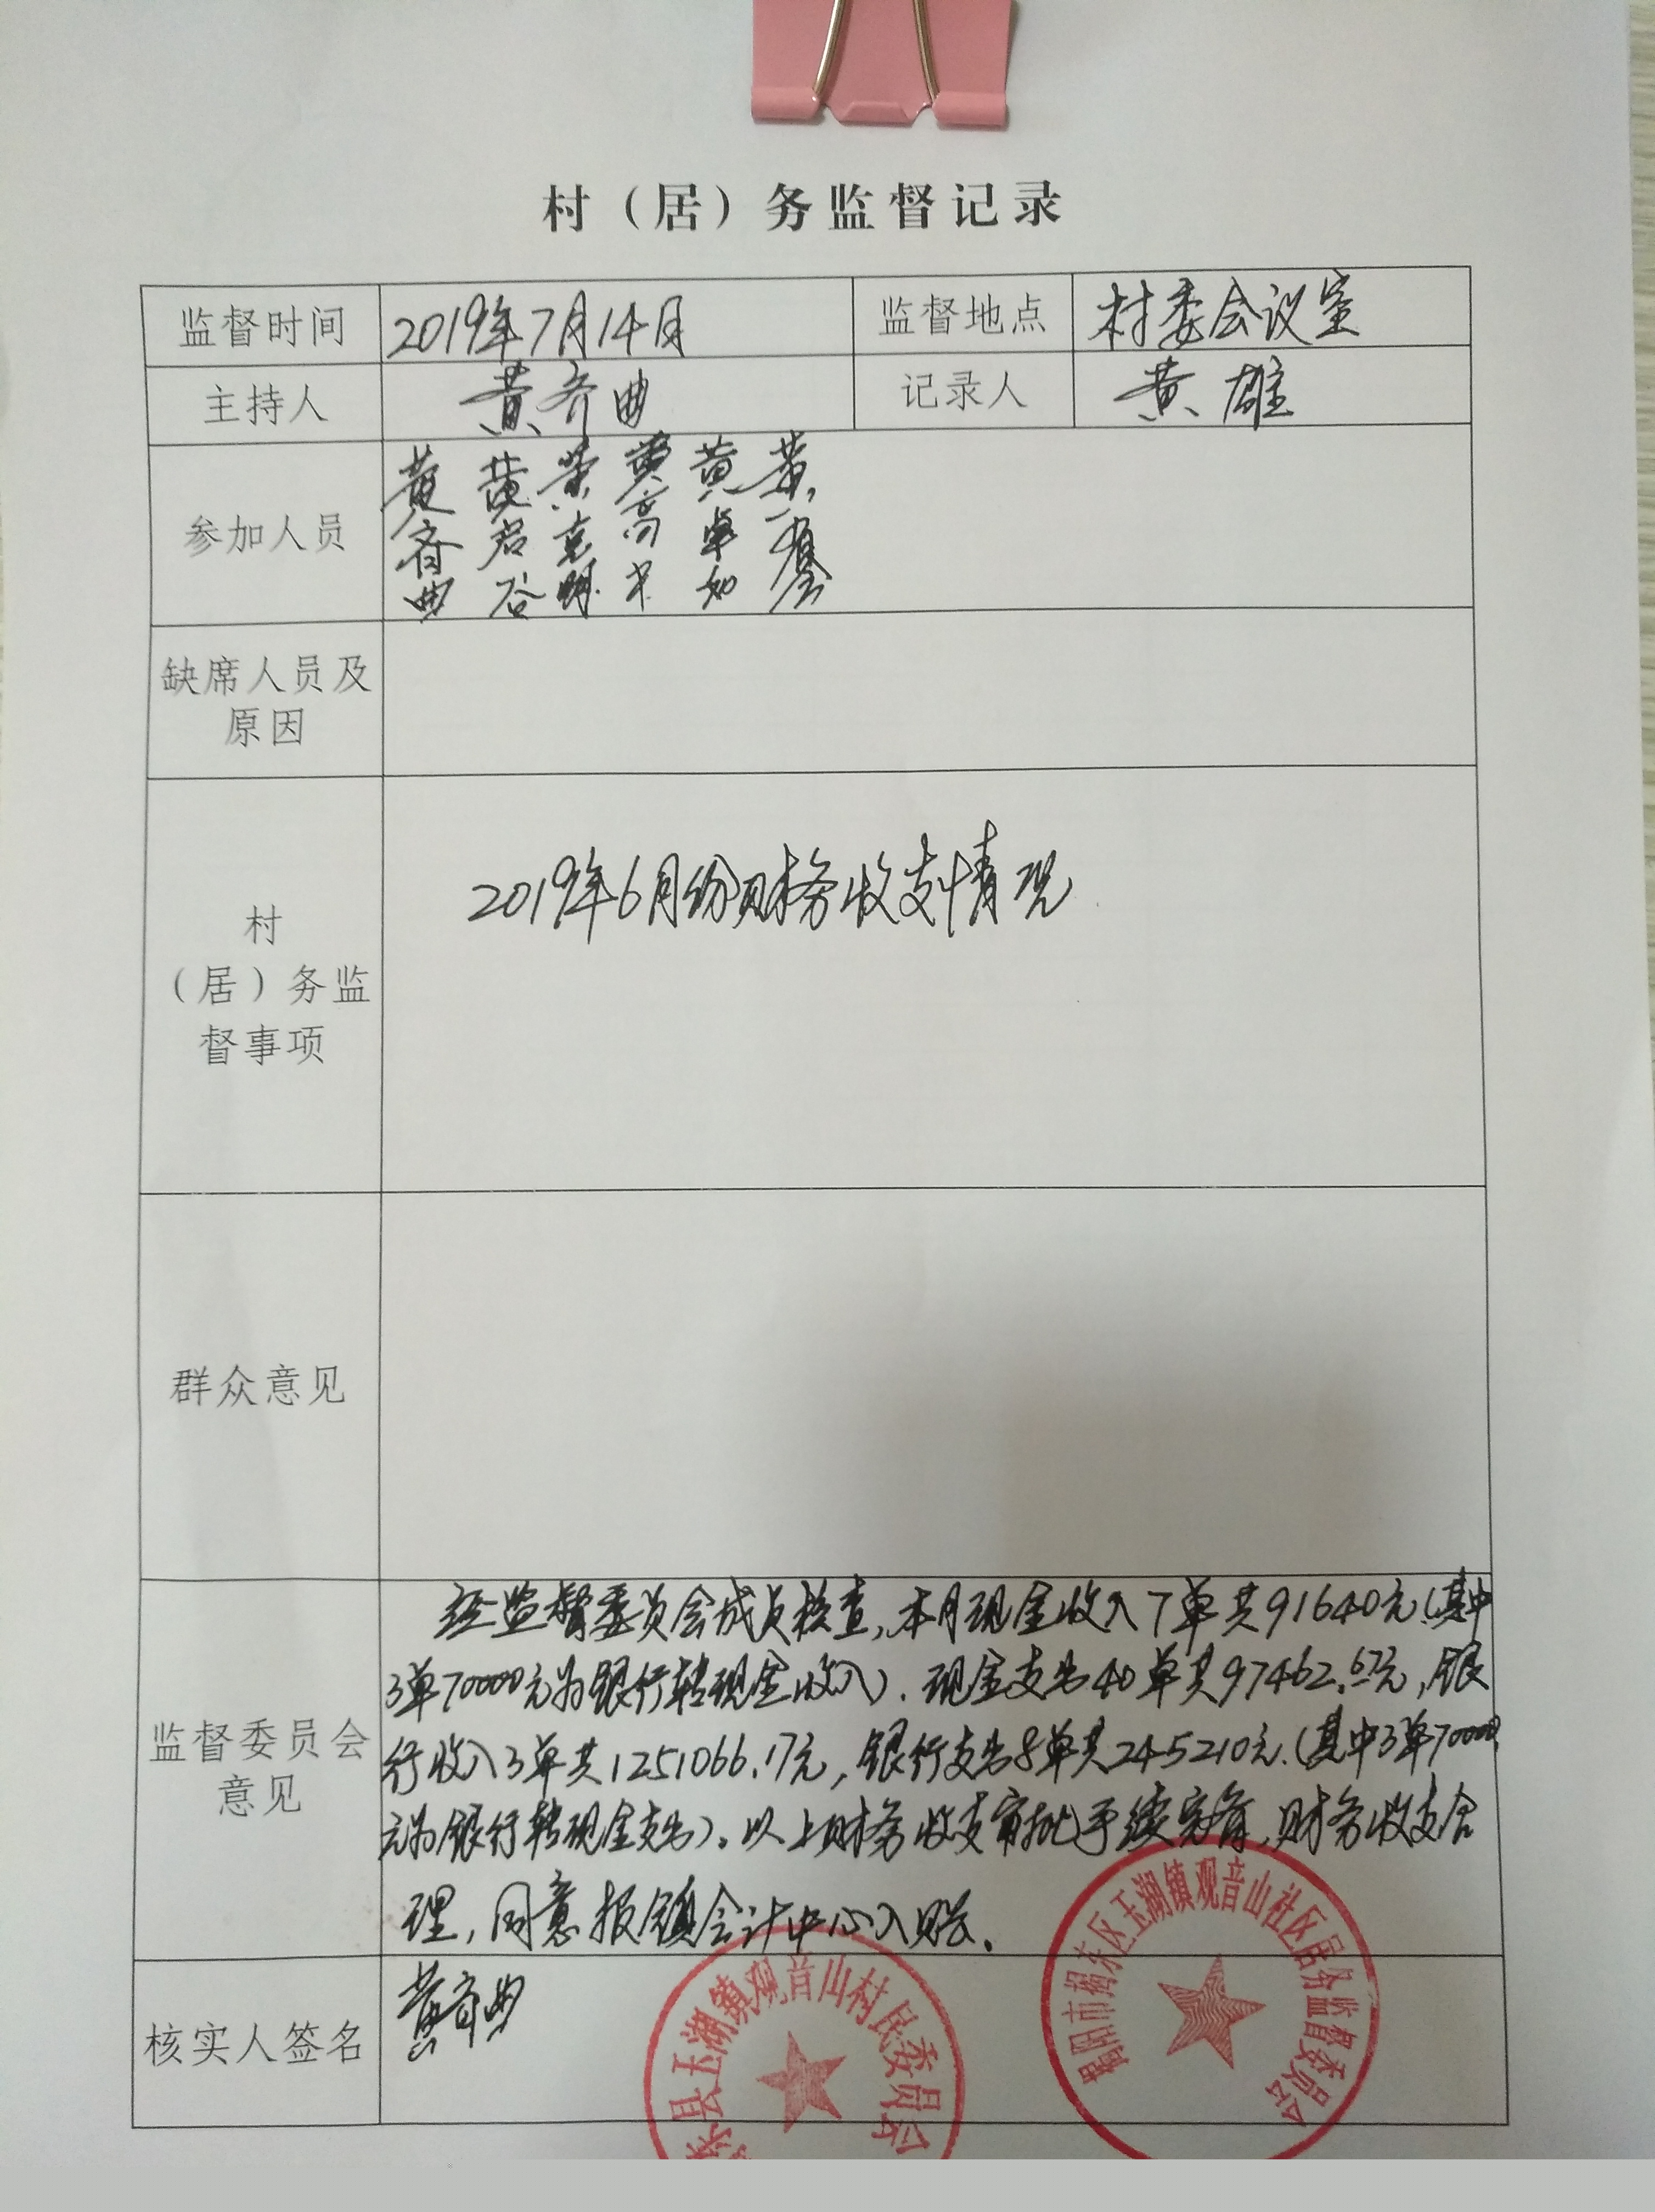 村（居）务监督记录
监督时间 2019年7月14日 监督地点 村委会议室
主持人 黄齐曲 记录人 黄雄
参加人员 黄齐曲
缺席人员及
原因
村
（居）务监
督事项
2019年6月份财务收支情况
群众意见
经监督委员会成员核查,本月现金收入7单共91640元(其中
3单70000元为银行转现金收入).现金支出40单共97462.67元,银
行收入3单共1251066.17元,银行支出8单共245210元.(其中3单70000
元为银行转现金支出)。以上财务收支审批手续完备,财务收支合
理,同意报镇会计中心入账.
监督委员会
意见
核实人签名 黄齐曲
县玉湖镇观音山村民委员会
揭阳市揭东区玉湖镇观音山社区居务监督委员会